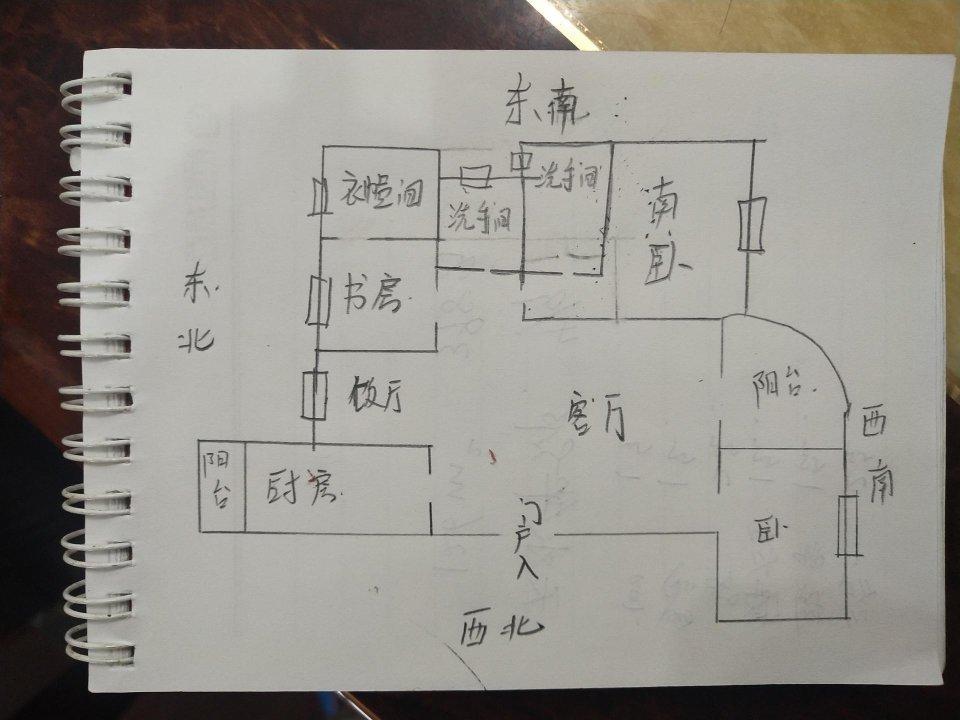 东南
衣帽间
洗手间
洗手间
南卧
东北
书房
饭厅
客厅
阳台
西南
阳台
厨房
卧
入户门
西北